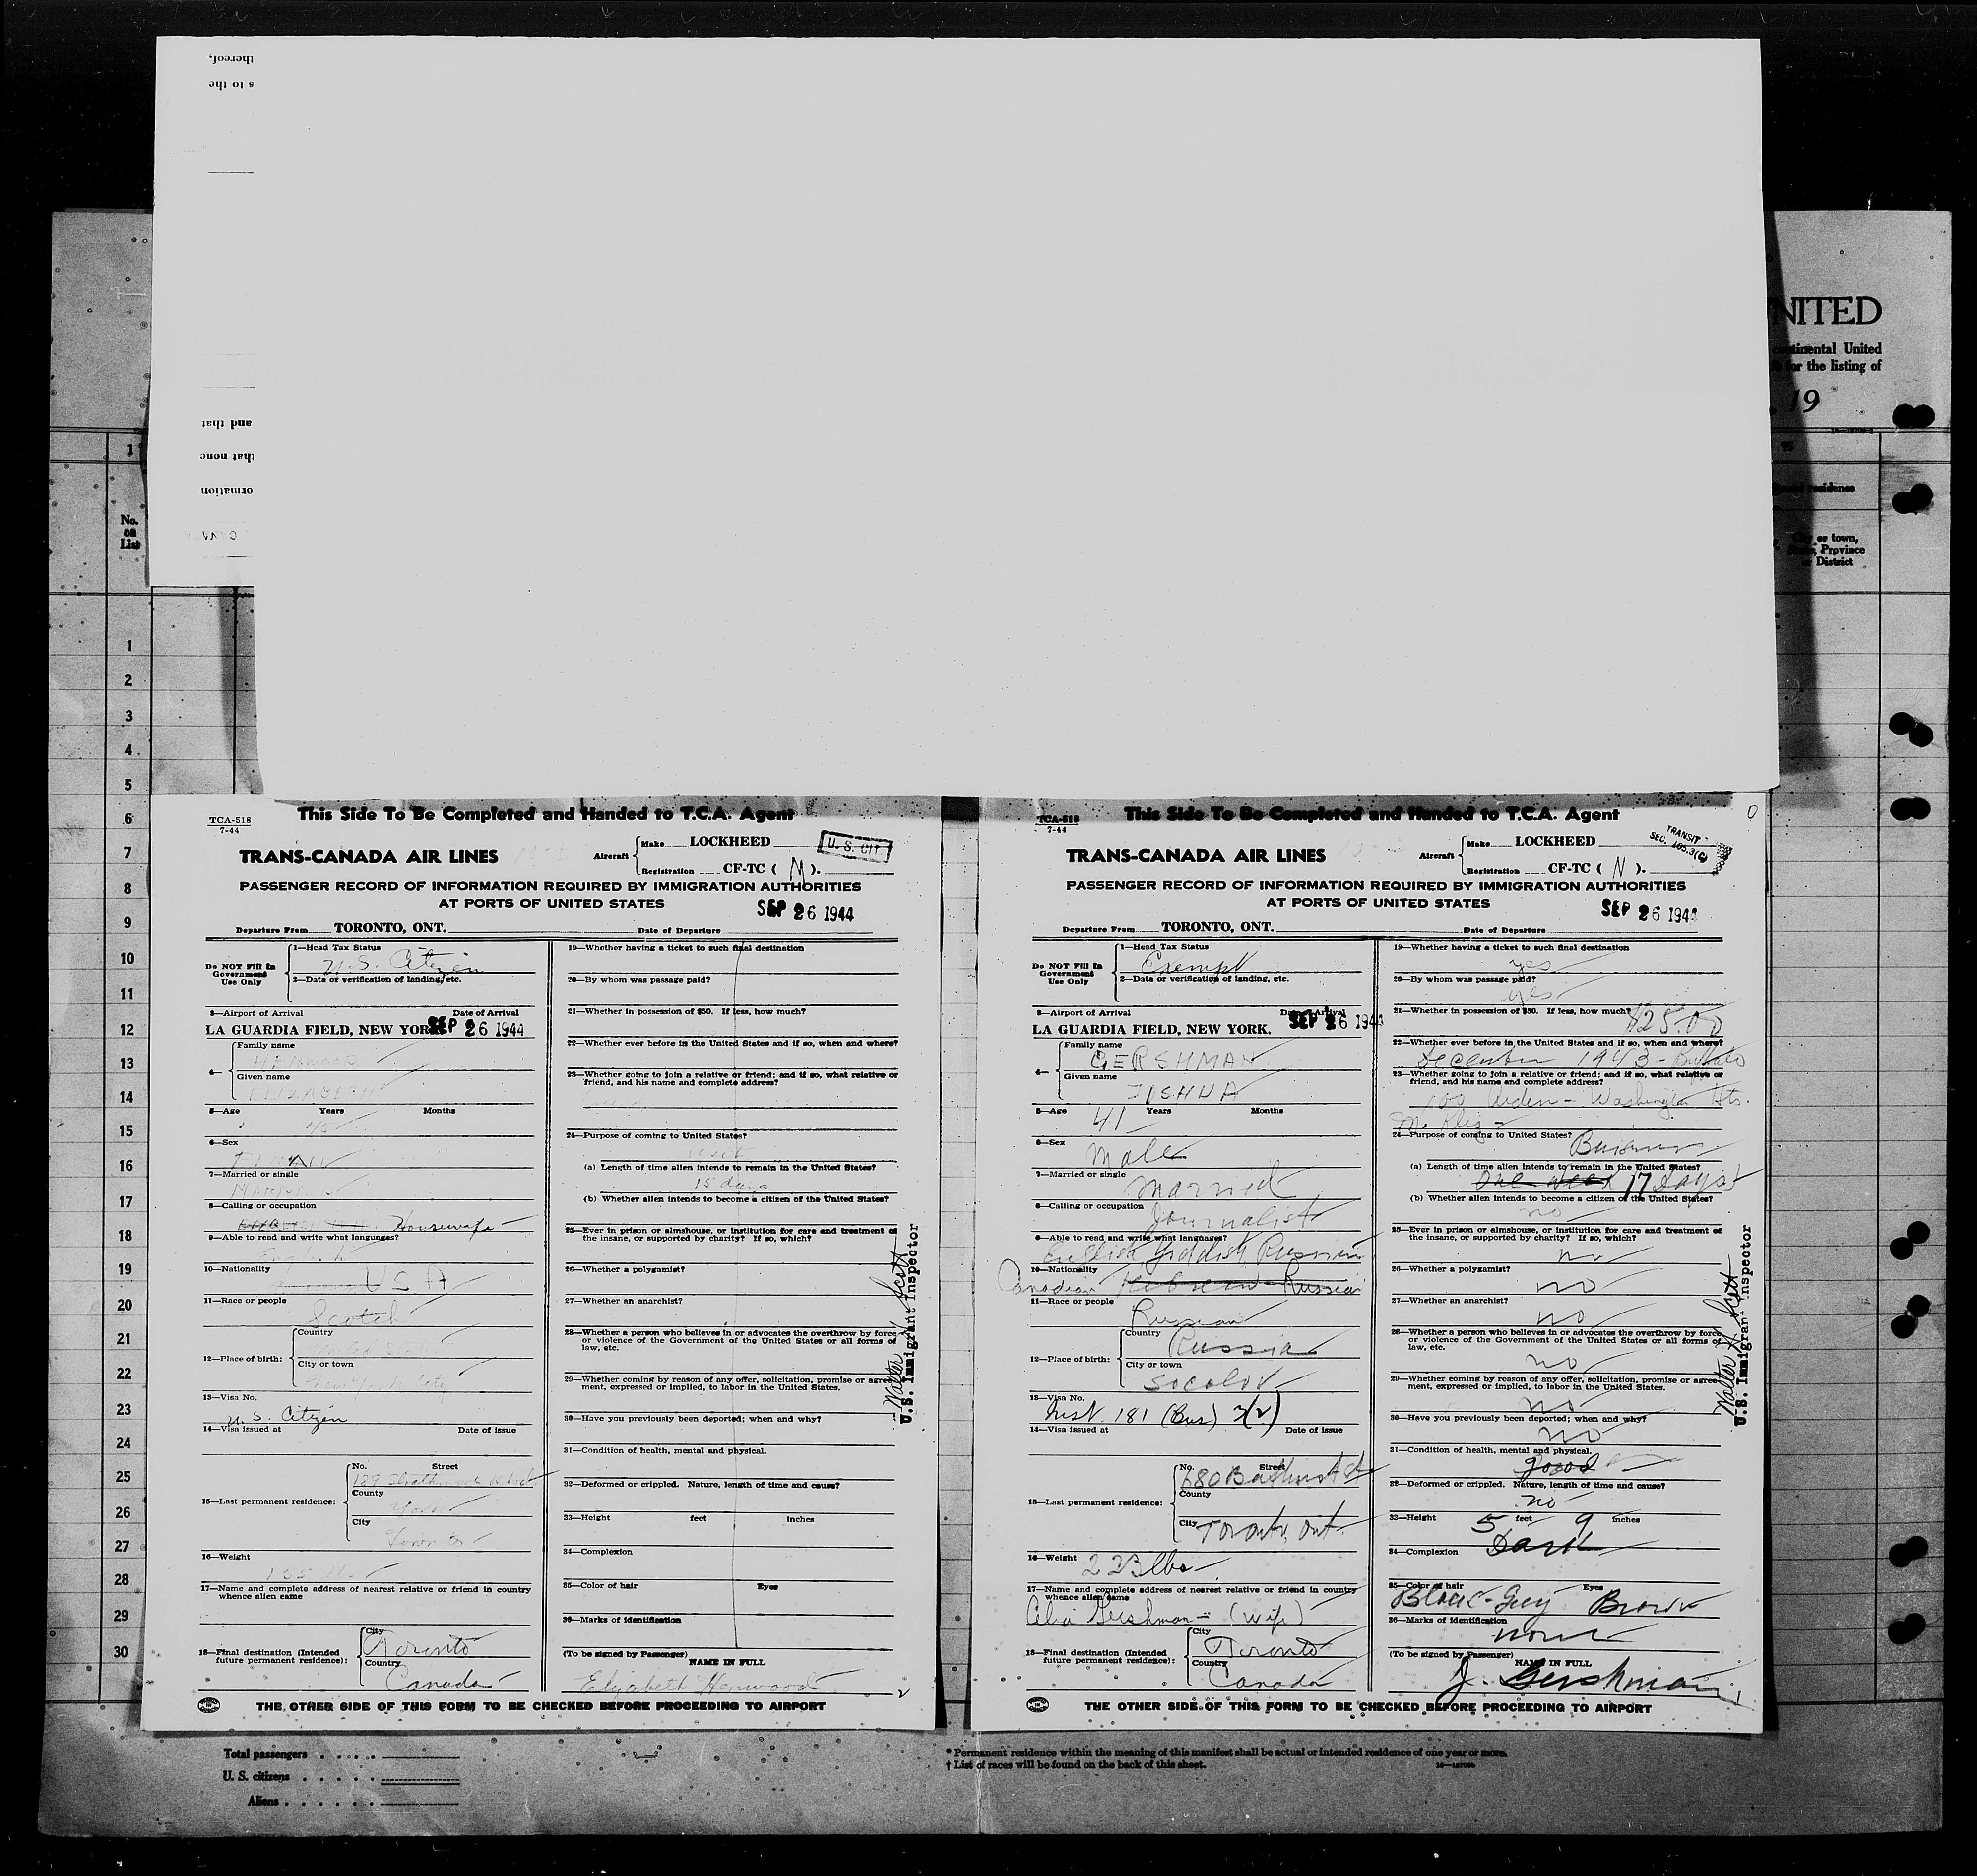 thereof,
s to the
and that
that none
ormation
NITED
continental United
for the listing of
, 19
1
No.
on
List
residence
City or town,
State, Province
or District
1
2
3
4
5
6
7
8
9
10
11
12
13
14
15
16
17
18
19
20
21
22
23
24
25
26
27
28
29
30
This Side To Be Completed and Handed to T.C.A. Agent
TCA-518
7-44
TRANS-CANADA AIR LINES
Aircraft
Make LOCKHEED
Registration CF-TC ( M ).
U. S. CIT
PASSENGER RECORD OF INFORMATION REQUIRED BY IMMIGRATION AUTHORITIES
AT PORTS OF UNITED STATES
SEP 26 1944
Departure From TORONTO, ONT. Date of Departure
Do NOT Fill In
Government
Use Only
1—Head Tax Status
U.S. Citizen
2—Data or verification of landing, etc.
3—Airport of Arrival Date of Arrival
LA GUARDIA FIELD, NEW YORK SEP 26 1944
4—
Family name
HENWOOD
Given name
ELIZABETH
5—Age Years Months
6—Sex
7—Married or single
8—Calling or occupation
Housewife
9—Able to read and write what languages?
English
10—Nationality
U S A
11—Race or people
Scotch
12—Place of birth:
Country
United States
City or town
New York City
13—Visa No.
U.S. Citizen
14—Visa issued at Date of issue
15—Last permanent residence:
No. Street
189
County
York
City
Toronto
16—Weight
17—Name and complete address of nearest relative or friend in country
whence alien came
18—Final destination (Intended
future permanent residence):
City
Toronto
Country
Canada
19—Whether having a ticket to such final destination
20—By whom was passage paid?
21—Whether in possession of $50. If less, how much?
22—Whether ever before in the United States and if so, when and where?
23—Whether going to join a relative or friend; and if so, what relative or
friend, and his name and complete address?
24—Purpose of coming to United States?
visit
(a) Length of time alien intends to remain in the United States?
15 days
(b) Whether alien intends to become a citizen of the United States?
25—Ever in prison or almshouse, or institution for care and treatment of
the insane, or supported by charity? If so, which?
26—Whether a polygamist?
27—Whether an anarchist?
28—Whether a person who believes in or advocates the overthrow by force
or violence of the Government of the United States or all forms of
law, etc.
29—Whether coming by reason of any offer, solicitation, promise or agree-
ment, expressed or implied, to labor in the United States.
30—Have you previously been deported; when and why?
31—Condition of health, mental and physical.
32—Deformed or crippled. Nature, length of time and cause?
33—Height feet inches
34—Complexion
35—Color of hair Eyes
36—Marks of identification
(To be signed by Passenger) NAME IN FULL
Elizabeth Henwood
2
Walter H Scott
U.S. Immigrant Inspector
THE OTHER SIDE OF THIS FORM TO BE CHECKED BEFORE PROCEEDING TO AIRPORT
This Side To Be Completed and Handed to T.C.A. Agent
TCA-518
7-44
TRANS-CANADA AIR LINES
Aircraft
Make LOCKHEED
Registration CF-TC ( N ).
TRANSIT
SEC. 105.3(C)
PASSENGER RECORD OF INFORMATION REQUIRED BY IMMIGRATION AUTHORITIES
AT PORTS OF UNITED STATES
SEP 26 1944
Departure From TORONTO, ONT. Date of Departure
Do NOT Fill In
Government
Use Only
1—Head Tax Status
Exempt
2—Data or verification of landing, etc.
3—Airport of Arrival Date of Arrival
LA GUARDIA FIELD, NEW YORK. SEP 26 1944
4—
Family name
GERSHMAN
Given name
JOSHUA
5—Age 41 Years Months
6—Sex
Male
7—Married or single
Married
8—Calling or occupation
Journalist
9—Able to read and write what languages?
English Yiddish, Russian
10—Nationality
Canadian Hebrew Russian
11—Race or people
Russian
12—Place of birth:
Country
Russia
City or town
Socolov
13—Visa No.
Inst. 181 (Bus) 3(2)
14—Visa issued at Date of issue
15—Last permanent residence:
No. Street
680 Bathurst St
County
City Toronto, Ont.
16—Weight 223 lbs.
17—Name and complete address of nearest relative or friend in country
whence alien came
Celia Gershman - (Wife)
18—Final destination (Intended
future permanent residence):
City
Toronto
Country
Canada
19—Whether having a ticket to such final destination
yes
20—By whom was passage paid?
yes
21—Whether in possession of $50. If less, how much? $25.00
22—Whether ever before in the United States and if so, when and where?
December 1943 - Buffalo
23—Whether going to join a relative or friend; and if so, what relative or
friend, and his name and complete address?
100 Arden - Washington Hts.
24—Purpose of coming to United States? Business
(a) Length of time alien intends to remain in the United States?
One Week 17 Days
(b) Whether alien intends to become a citizen of the United States?
no
25—Ever in prison or almshouse, or institution for care and treatment of
the insane, or supported by charity? If so, which?
no
26—Whether a polygamist?
no
27—Whether an anarchist?
no
28—Whether a person who believes in or advocates the overthrow by force
or violence of the Government of the United States or all forms of
law, etc.
no
29—Whether coming by reason of any offer, solicitation, promise or agree-
ment, expressed or implied, to labor in the United States.
no
30—Have you previously been deported; when and why?
no
31—Condition of health, mental and physical.
good
32—Deformed or crippled. Nature, length of time and cause?
no
33—Height 5 feet 9 inches
34—Complexion Dark
35—Color of hair Eyes
Black-Grey Brown
36—Marks of identification
none
(To be signed by Passenger) NAME IN FULL
J. Gershman
1
Walter H Scott
U.S. Immigrant Inspector
THE OTHER SIDE OF THIS FORM TO BE CHECKED BEFORE PROCEEDING TO AIRPORT
Total passengers
U. S. citizens
Aliens
* Permanent residence within the meaning of this manifest shall be actual or intended residence of one year or more.
† List of races will be found on the back of this sheet.